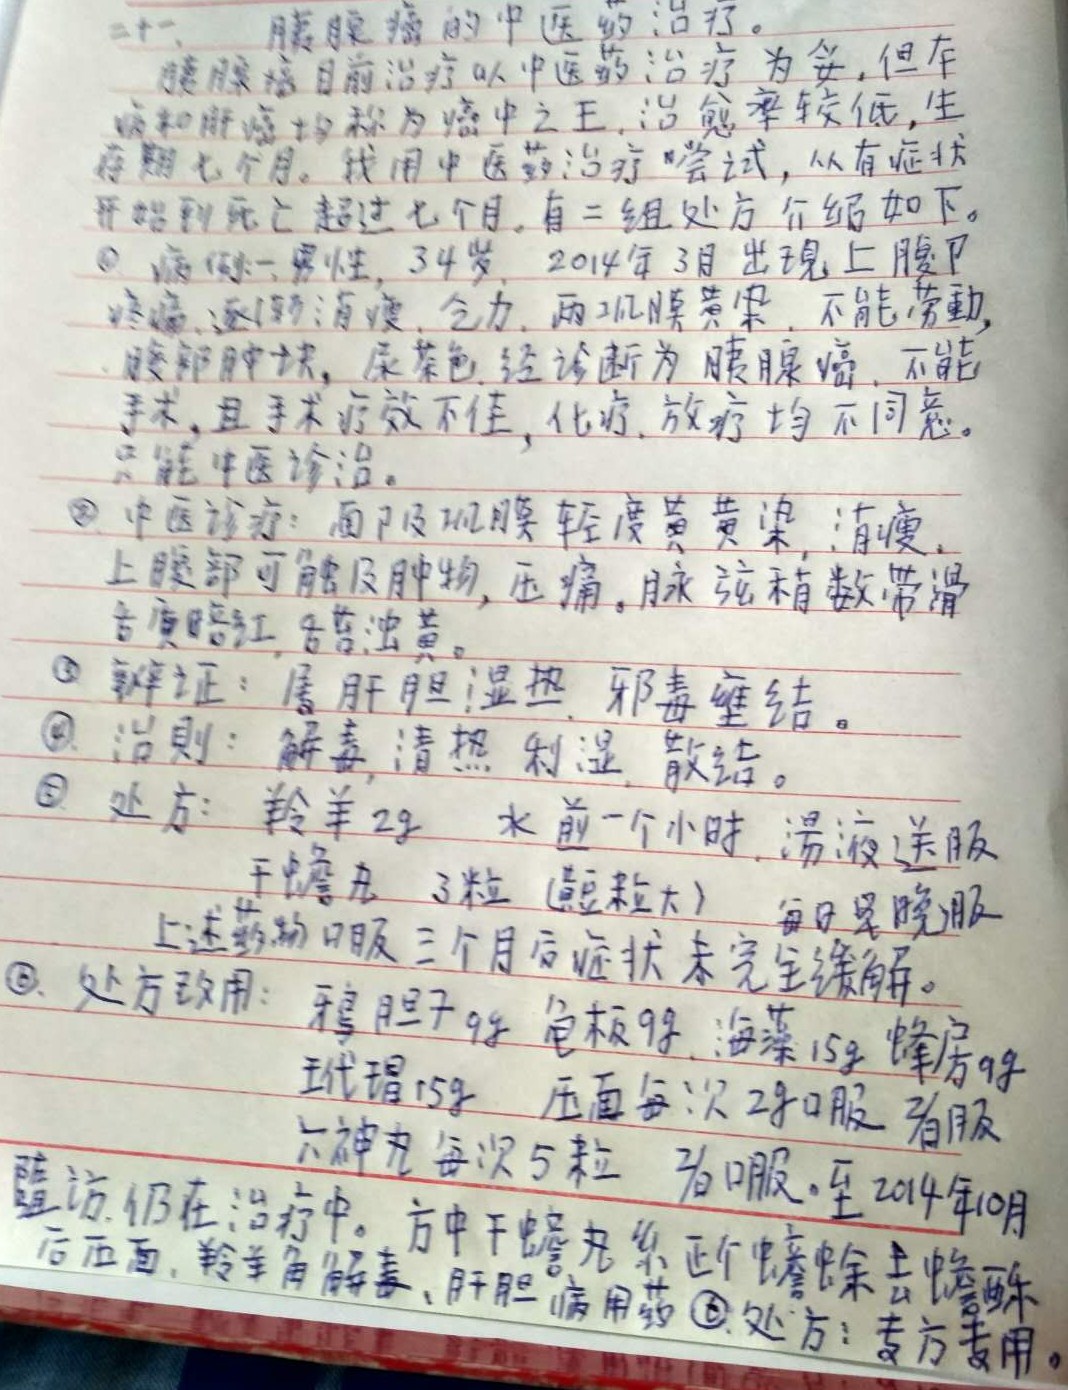 二十一、 胰腺癌的中医药治疗。
胰腺癌目前治疗以中医药治疗为妥,但本
病和肝癌均称为癌中之王,治愈率较低,生
存期七个月。我用中医药治疗尝试,从有症状
开始到死亡超过七个月。有二组处方介绍如下。
① 病例一,男性,34岁,2014年3月出現上腹部
疼痛,逐渐消瘦,乏力,两巩膜黄染,不能劳動,
腹部肿块,尿茶色,经诊断为胰腺癌,不能
手术,且手术疗效不佳,化疗,放疗均不同意。
只能中医诊治。
② 中医诊疗:面部及巩膜轻度黄黄染,消瘦,
上腹部可触及肿物,压痛。脉弦稍数带滑
舌质暗红,舌苔浊黄。
③ 辨证:属肝胆湿热,邪毒壅结。
④ 治則:解毒,清热利湿,散结。
⑤ 处方:羚羊2g 水前一个小时,湯液送服
干蟾丸 3粒(黄豆粒大) 每日早晚服
上述药物口服三个月后症状未完全缓解。
⑥ 处方改用:鸦胆子9g 龟板9g,海藻15g 蜂房9g
玳瑁15g 压面每次2g口服 2/日服
六神丸每次5粒 2/日口服。至2014年10月
隨访仍在治疗中。方中干蟾丸系正个蟾蜍去蟾酥
后压面,羚羊角解毒、肝胆病用药⑥处方:专方专用。